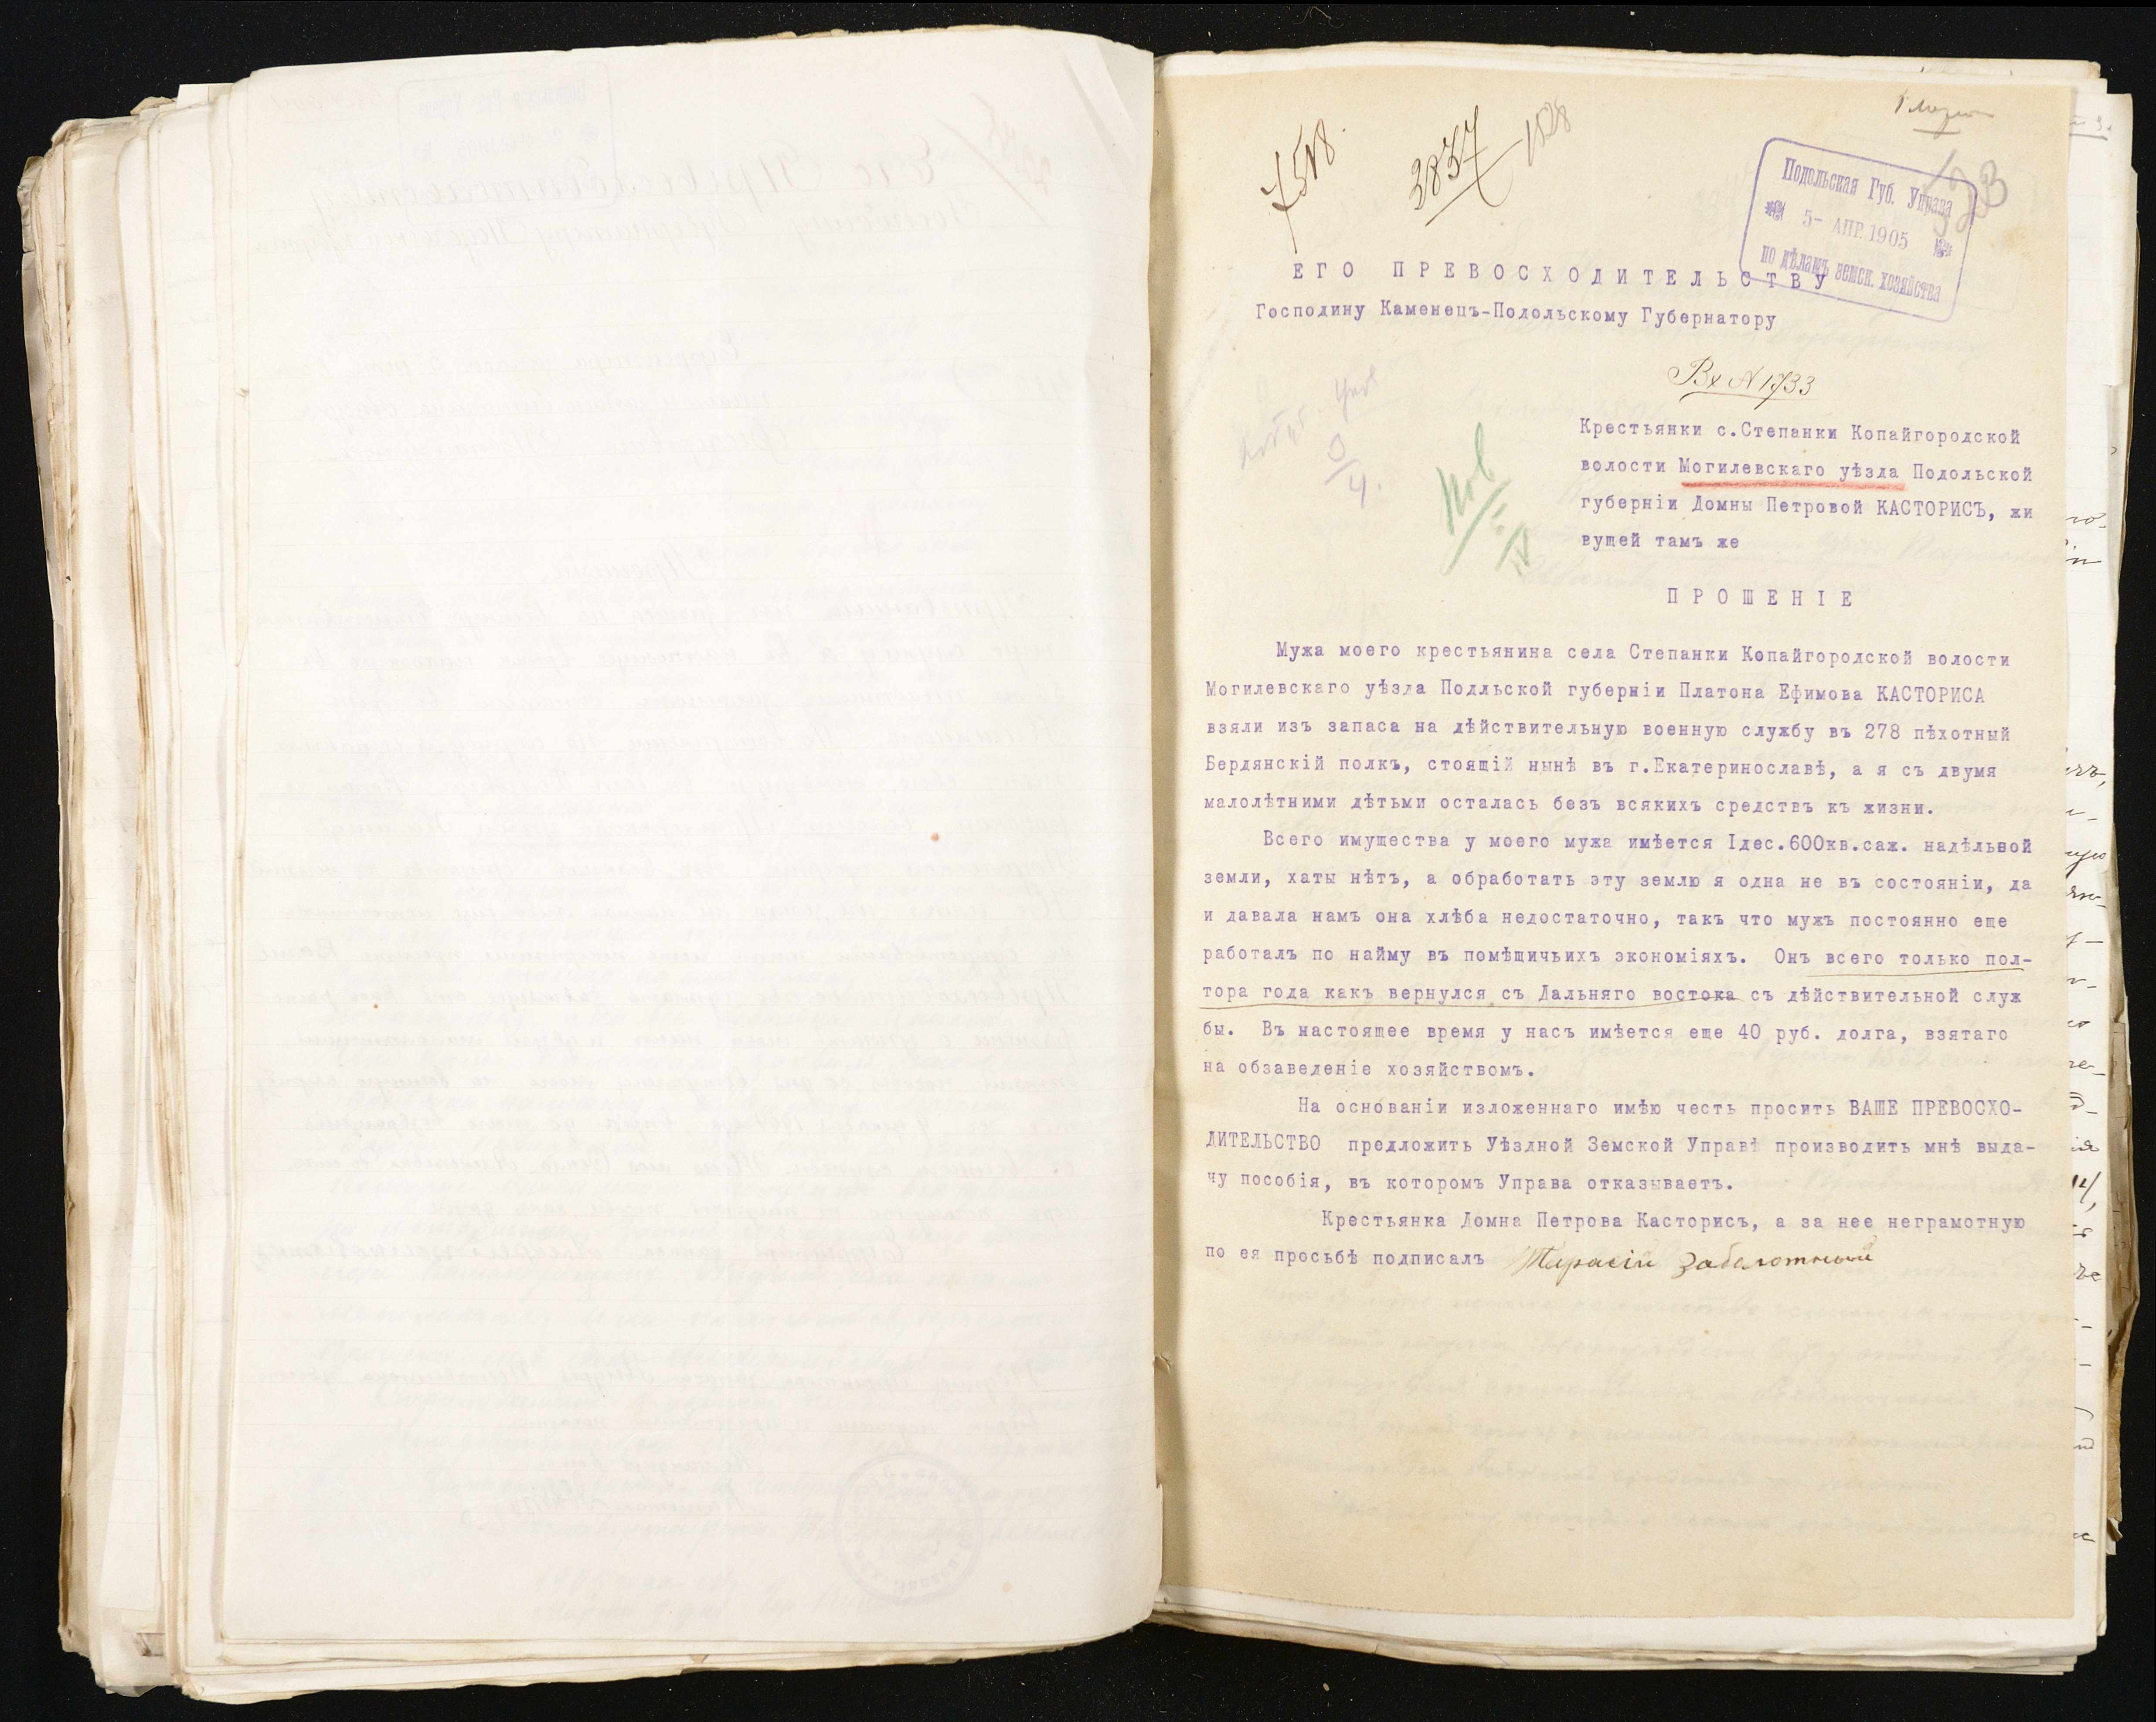 7518.
2837
1528
Подольская Губ. Управа
5- АПР. 1905
по дѣламъ земск. хозяйства
ЕГО ПРЕВОСХОДИТЕЛЬСТВУ
Господину Каменецъ-Подольскому Губернатору
Вх N 1733
Крестьянки с.Степанки Копайгородской
волости Могилевскаго уѣзда Подольской
губерніи Домны Петровой КАСТОРИСЪ, жи
вущей тамъ же
ПРОШЕНІЕ
Мужа моего крестьянина села Степанки Копайгородской волости
Могилевскаго уѣзда Подльской губерніи Платона Ефимова КАСТОРИСА
взяли изъ запаса на дѣйствительную военную службу въ 278 пѣхотный
Бердянскій полкъ, стоящій нынѣ въ г.Екатеринославѣ, а я съ двумя
малолѣтними дѣтьми осталась безъ всякихъ средствъ къ жизни.
Всего имущества у моего мужа имѣется Iдес.600кв.саж. надѣльной
земли, хаты нѣтъ, а обработать эту землю я одна не въ состояніи, да
и давала намъ она хлѣба недостаточно, такъ что мужъ постоянно еще
работалъ по найму въ помѣщичьихъ экономіяхъ. Онъ всего только пол-
тора года какъ вернулся съ Дальняго востока съ дѣйствительной служ
бы. Въ настоящее время у насъ имѣется еще 40 руб. долга, взятаго
на обзаведеніе хозяйствомъ.
На основаніи изложеннаго имѣю честь просить ВАШЕ ПРЕВОСХО-
ДИТЕЛЬСТВО предложить Уѣздной Земской Управѣ производить мнѣ выда-
чу пособія, въ которомъ Управа отказываетъ.
Крестьянка Домна Петрова Касторисъ, а за нее неграмотную
по ея просьбѣ подписалъ Тарасій Заболотный